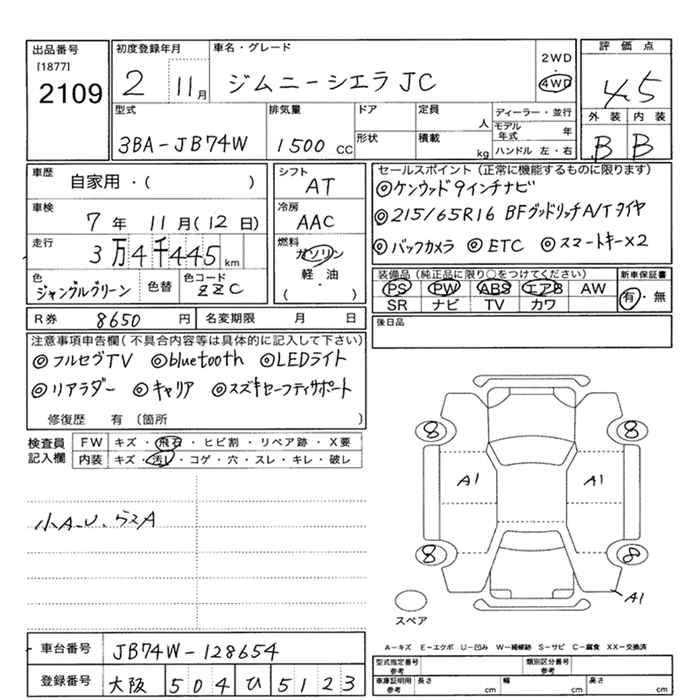 出品番号
[1877]
2109
初度登録年月
2 11月
車名・グレード
ジムニーシエラ JC
2WD
4WD
評価点
4.5
外装 内装
B B
型式
3BA-JB74W
排気量
1500 CC
ドア
形状
定員
人
積載
kg
ディーラー・並行
モデル年式 年
ハンドル 左・右
車歴
自家用・( )
車検
7年 11月(12日)
走行
3万4千445km
色
ジャングルグリーン
色替
色コード
ZZC
シフト
AT
冷房
AAC
燃料
ガソリン
軽・油
( )
セールスポイント(正常に機能するものに限ります)
◎ケンウッド9インチナビ
◎215/65R16 BFグッドリッチA/Tタイヤ
◎バックカメラ ◎ETC ◎スマートキー×2
装備品(純正品に限り○をつけてください)
PS PW ABS エアB AW
SR ナビ TV カワ
新車保証書
有・無
R券 8650円
名変期限 月 日
後日品
注意事項申告欄(不具合内容等は具体的に記入して下さい)
◎フルセグTV ◎bluetooth ◎LEDライト
◎リアラダー ◎キャリア ◎スズキセーフティサポート
修復歴 有 〔箇所
検査員記入欄
FW キズ・飛石・ヒビ割・リペア跡・X要
内装 キズ・汚れ・コゲ・穴・スレ・キレ・破レ
小A.U.ラスA
8 8
A1 A1
8 8
A1
スペア
A-キズ E-エクボ U-凹み W-補修跡 S-サビ C-腐食 XX-交換済
車台番号
JB74W-128654
登録番号
大阪 504 ひ 5123
型式指定番号 参考
類別区分番号 参考
車庫証明用 参考
長さ cm
幅 cm
高さ cm